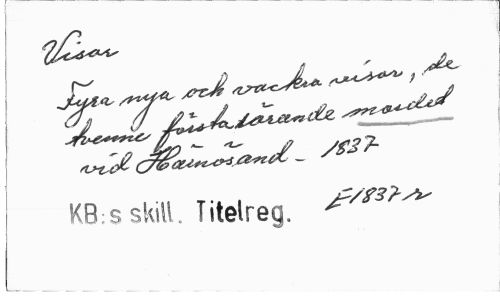 Visor
Fyra nya och vackra visor, de
tvenne första rörande mordet
vid Härnösand - 1837
KB:s skill. Titelreg.
E1837 r